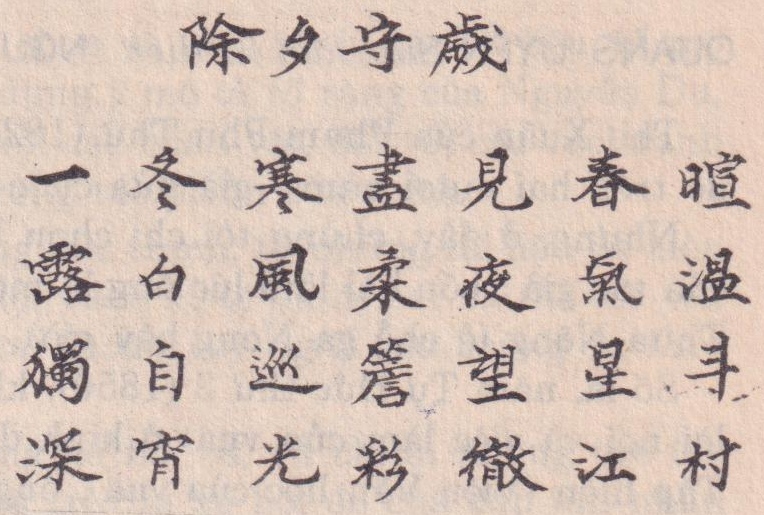 除夕守歲
一冬寒盡見春暄
露白風柔夜氣溫
獨自巡簷望星斗
深宵光彩徹江村